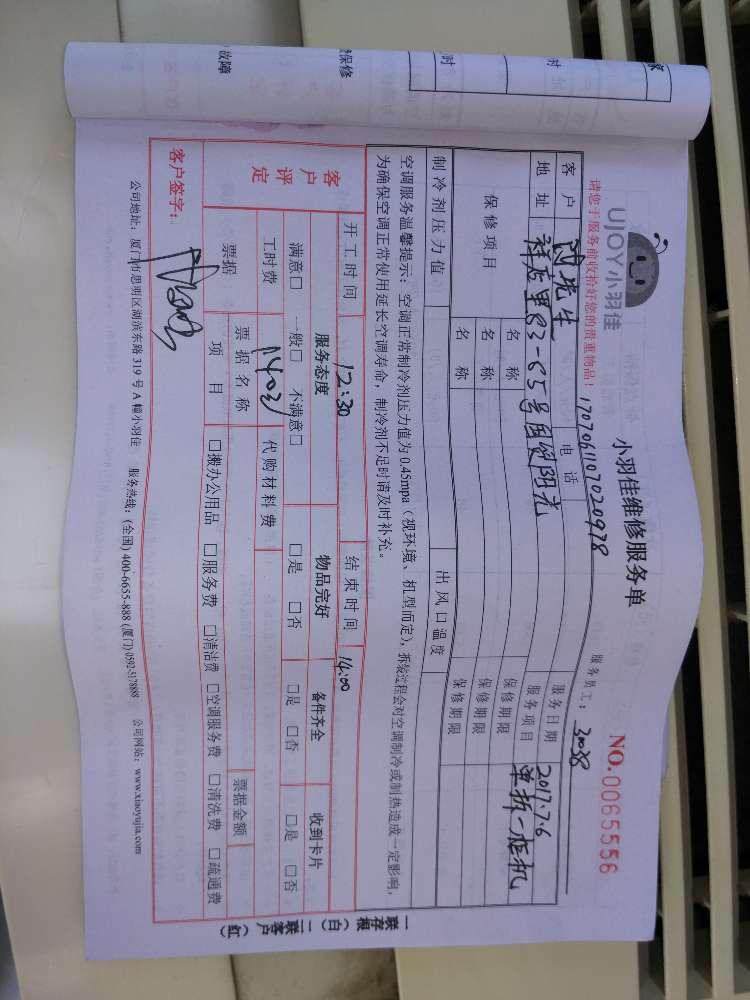 UJOY小羽佳
小羽佳维修服务单
NO.0065556
请您于服务前收拾好您的贵重物品!
1707061107020978
服务员工: 3038
客户 先生 电话 服务日期 2017.7.6
地址 祥店里83-85号国贸阳光 服务项目 单拆一柜机
保修项目 名称 保修期限
名称 保修期限
名称 保修期限
制冷剂压力值 出风口温度
空调服务温馨提示:空调正常制冷剂压力值为0.45mpa(视环境、机型而定),拆装过程会对空调制冷或制热造成一定影响,
为确保空调正常使用延长空调寿命,制冷剂不足时请及时补充。
开工时间 12:30 结束时间 14:00
客户评定 服务态度 物品完好 备件齐全 收到卡片
满意□ 一般□ 不满意□ □是 □否 □是 □否 □是 □否
工时费 140元 代购材料费
票据 票据名称 票据金额
项目 □搬办公用品 □服务费 □清洁费 □空调服务费 □清洗费 □疏通费
客户签字:
公司地址:厦门市思明区湖滨东路319号A幢小羽佳 服务热线:(全国)400-6655-888(厦门)0592-5178888 公司网站:www.xiaoyujia.com
一联存根(白) 二联客户(红)
保修
故障